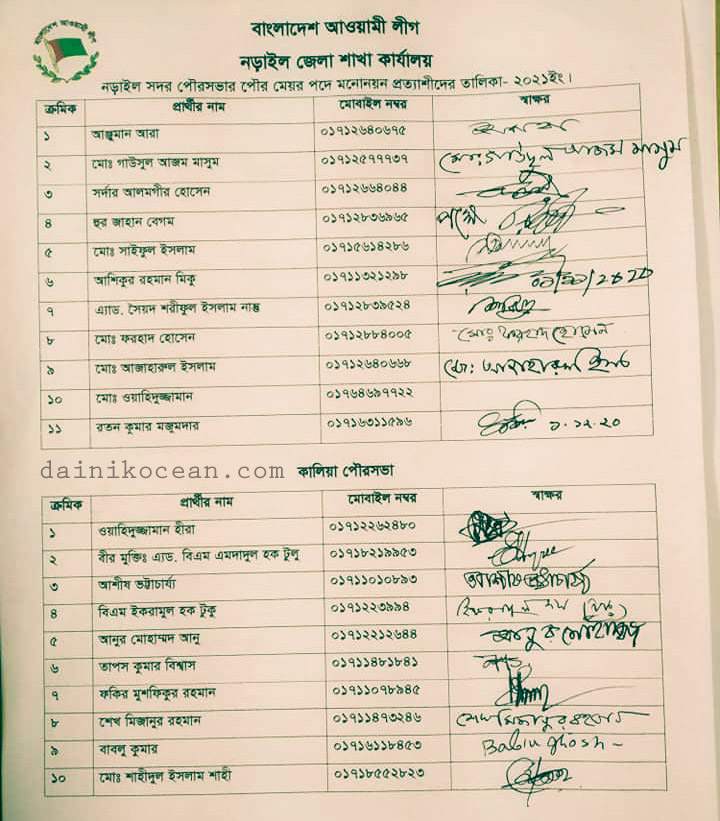 বাংলাদেশ আওয়ামী লীগ
নড়াইল জেলা শাখা কার্যালয়
নড়াইল সদর পৌরসভার পৌর মেয়র পদে মনোনয়ন প্রত্যাশীদের তালিকা- ২০২১ইং।
ক্রমিক প্রার্থীর নাম মোবাইল নম্বর স্বাক্ষর
১ আঞ্জুমান আরা ০১৭১২৬৪০৬৭৫
২ মোঃ গাউসুল আজম মাসুম ০১৭১২৫৭৭৭৩৭ মোঃ গাউসুল আজম মাসুম
৩ সর্দার আলমগীর হোসেন ০১৭১২৬৬৪০৪৪
৪ হুর জাহান বেগম ০১৭১২৮৩৬৯৬৫ পক্ষে
৫ মোঃ সাইফুল ইসলাম ০১৭১৫৬১৪২৮৬
৬ আশিকুর রহমান মিকু ০১৭১১৩২১২৯৮
৭ এ্যাড. সৈয়দ শরীফুল ইসলাম নান্তু ০১৭১২৮৩৯৫২৪
৮ মোঃ ফরহাদ হোসেন ০১৭১২৮৮৪০০৫ মোঃ ফরহাদ হোসেন
৯ মোঃ আজাহারুল ইসলাম ০১৭১২৬৪০৬৬৮
১০ মোঃ ওয়াহিদুজ্জামান ০১৭৬৪৬৯৭৭২২
১১ রতন কুমার মজুমদার ০১৭১৬৩১১৫৯৬ ১.১২.২০
dainikocean.com কালিয়া পৌরসভা
ক্রমিক প্রার্থীর নাম মোবাইল নম্বর স্বাক্ষর
১ ওয়াহিদুজ্জামান হীরা ০১৭১২২৬২৪৮০
২ বীর মুক্তিঃ এ্যাড. বিএম এমদাদুল হক টুলু ০১৭১৮২১৯৯৫৩
৩ আশীষ ভট্টাচার্য্য ০১৭১১০১০৮৯৩ আশীষ ভট্টাচার্য্য
৪ বিএম ইকরামুল হক টুকু ০১৭১২২৩৯৯৪
৫ আনুর মোহাম্মদ আনু ০১৭১২২১২৬৪৪
৬ তাপস কুমার বিশ্বাস ০১৭১১৪৮১৮৪১
৭ ফকির মুশফিকুর রহমান ০১৭১১০৭৮৯৪৫
৮ শেখ মিজানুর রহমান ০১৭১১৪৭৩২৪৬ শেখ মিজানুর রহমান
৯ বাবলু কুমার ০১৭১৬১১৮৪৫৩ Bablu ghosh
১০ মোঃ শাহীদুল ইসলাম শাহী ০১৭১৮৫৫২৮২৩